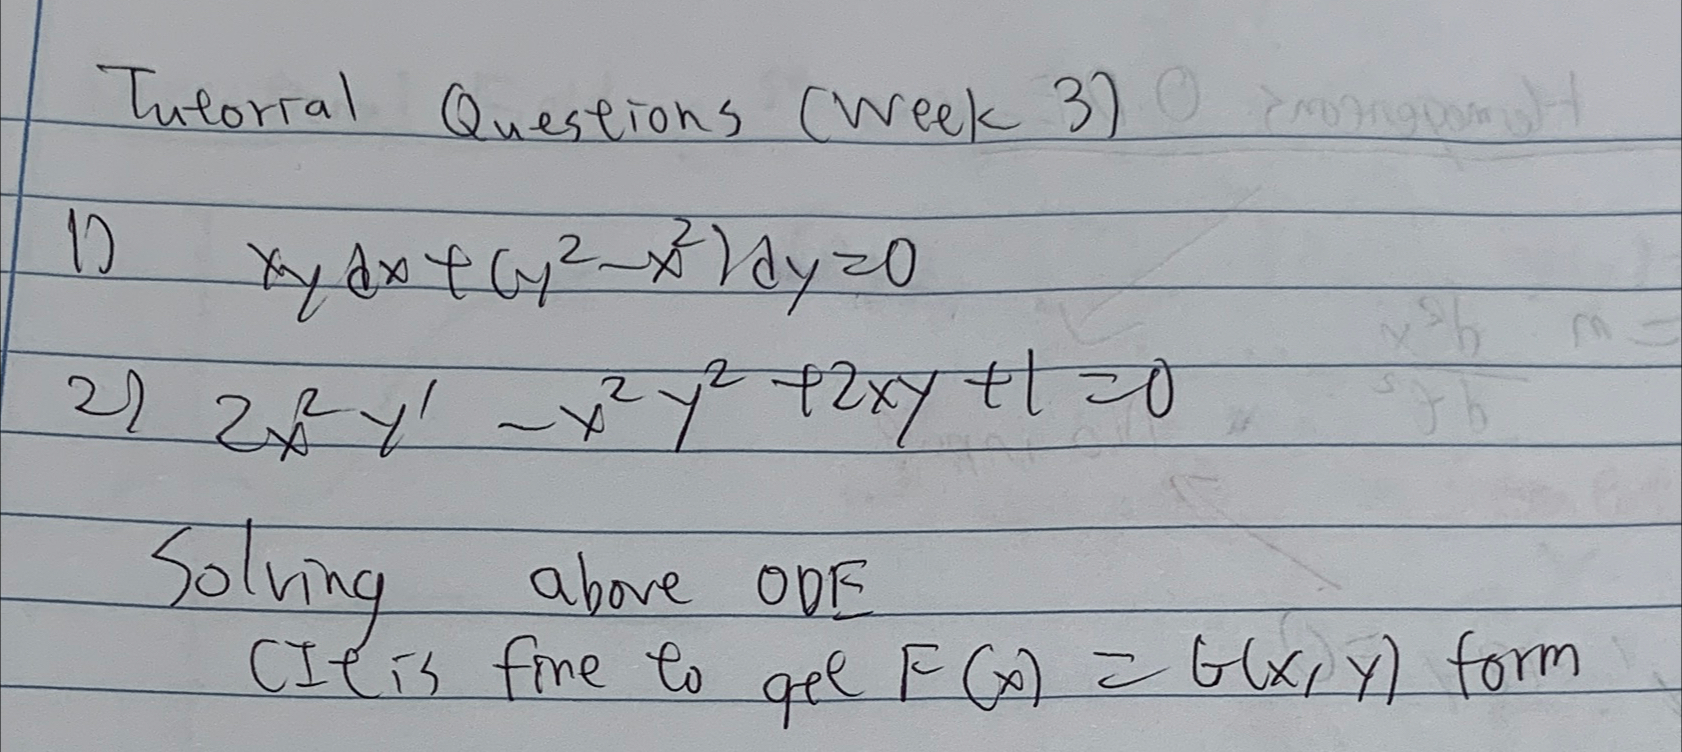 Tutorial Questions (Week 3)
1) xydx+(y²-x²)dy=0
2) 2x²y' -x²y²+2xy+1=0
Solving above ODE
(It is fine to get F(x) = G(x,y) form